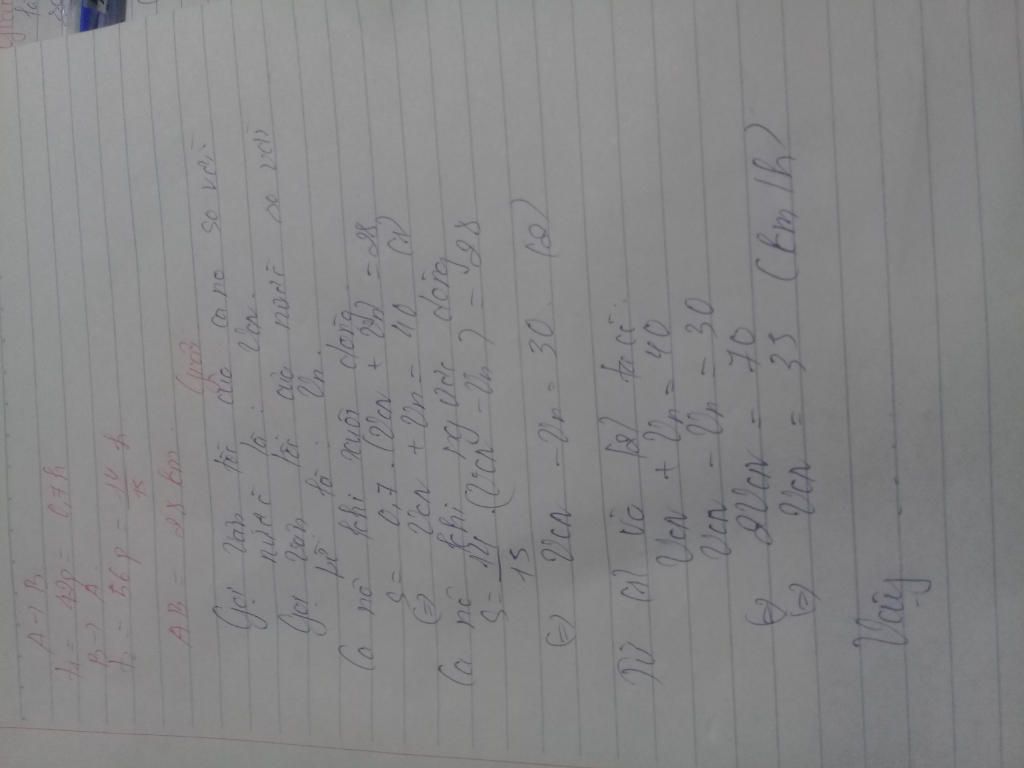 A → B
t₁ = 42p = 0,7h
B → A
t₂ = 56p = 14/15 h
AB = 28 km
Giải
Gọi vận tốc của cano so với
nước là: Vcn
Gọi vận tốc của nước so với
là: Vn
Ca nô khi xuôi dòng
S = 0,7.(Vcn + Vn) = 28
⇔ Vcn + Vn = 40 (1)
Ca nô khi ngược dòng
S = 14/15 (Vcn - Vn) = 28
⇔ Vcn - Vn = 30 (2)
Từ (1) và (2) ta có:
Vcn + Vn = 40
Vcn - Vn = 30
⇔ 2Vcn = 70
⇔ Vcn = 35 (km/h)
Vậy